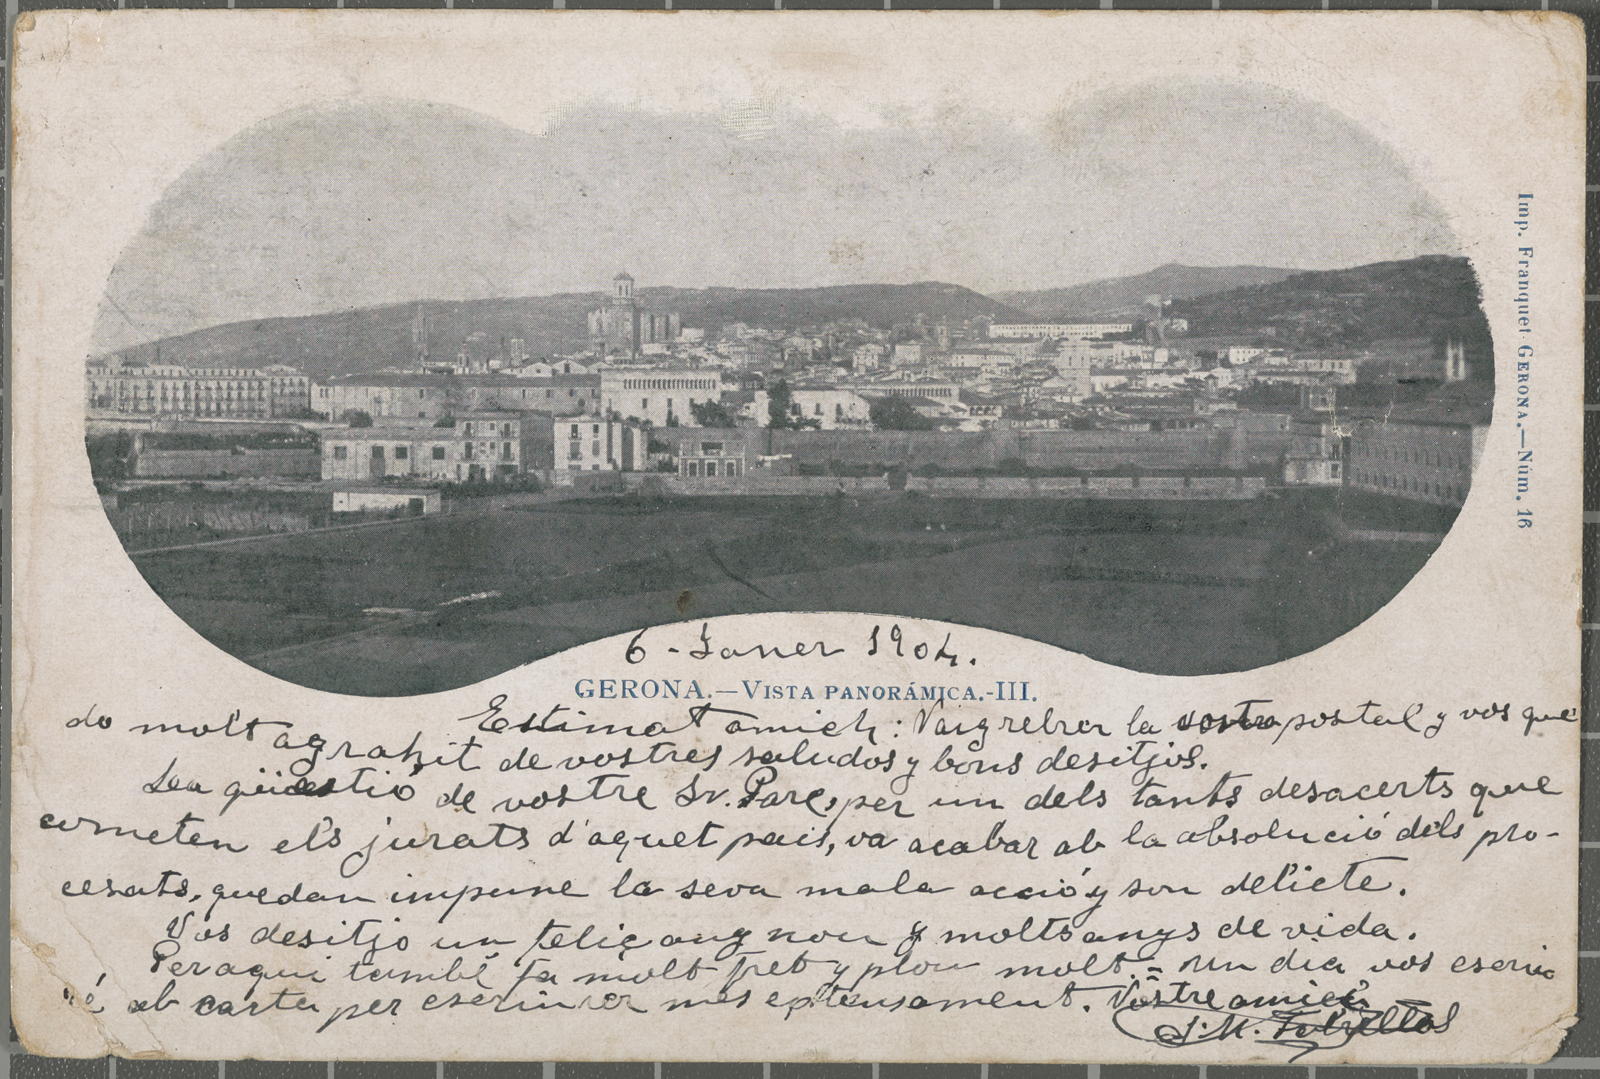 6 - Janer 1904.
GERONA.—VISTA PANORÁMICA.-III.
Estimat amich: Vaig rebrer la vostra postal y vos que
do molt agrahit de vostres saludos y bons desitjos.
La qüestió de vostre Sr. Pare, per un dels tants desacerts que
cometen els jurats d'aquet pais, va acabar ab la absolució dels pro-
cesats, quedan impune la seva mala acció y son delicte.
Vos desitjo un felic any nou y molts anys de vida.
Per aqui també fa molt fret y plou molt. = Un dia vos escriu
ré ab carta per escriurer mes extensament. Vostre amich
J. M.
Imp. Franquet GERONA.—Núm. 16